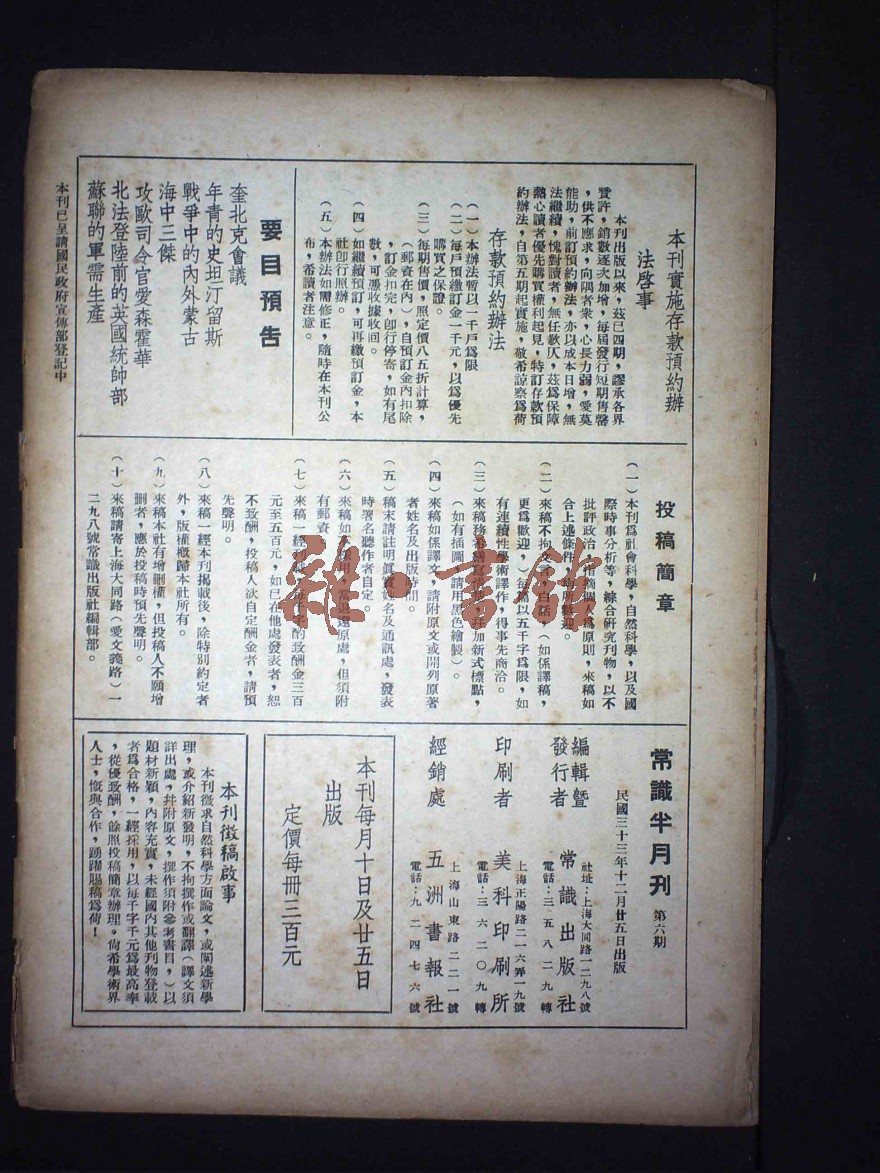 本刊實施存款預約辦
法啓事
本刊出版以來，茲已四期，謬承各界
贊許，銷數逐次加增，每屆發行短期售罄
，供不應求，向隅者衆，心長力弱，愛莫
能助，前訂預約辦法，亦以成本日增，無
法繼續，愧對讀者，無任歉仄，茲爲保障
熱心讀者優先購買權利起見，特訂存款預
約辦法，自第五期起實施，敬希諒察爲荷
存款預約辦法
（一）本辦法暫以一千戶爲限
（二）每戶預繳訂金一千元，以爲優先
購買之保證。
（三）每期售價，照定價八五折計算，
（郵資在內），自預訂金內扣除
，訂金扣完，卽行停寄，如有尾
數，可憑收據收回。
（四）如繼續預訂，可再繳預訂金，本
社卽行照辦。
（五）本辦法如需修正，隨時在本刊公
布，希讀者注意。
要目預告
奎北克會議
年青的史坦汀留斯
戰爭中的內外蒙古
海中三傑
攻歐司令官愛森霍華
北法登陸前的英國統帥部
蘇聯的軍需生產
本刊已呈請國民政府宣傳部登記中
投稿簡章
（一）本刊爲社會科學，自然科學，以及國
際時事分析等，綜合研究刊物，以不
批評政治，指摘個人爲原則，來稿如
合上述條件，均所歡迎。
（二）來稿不拘文言，白話，（如係譯稿，
更爲歡迎，）每篇以五千字爲限，如
有連續性學術譯作，得事先商洽。
（三）來稿務希繕寫清楚，并加新式標點，
（如有插圖，請用黑色繪製）。
（四）來稿如係譯文，請附原文或開列原著
者姓名及出版時間。
（五）稿末請註明眞實姓名及通訊處，發表
時署名聽作者自定。
（六）來稿如不採用，當退還原處，但須附
有郵資。
（七）來稿一經刊載，每千字酌致酬金三百
元至五百元，如已在他處發表者，恕
不致酬，投稿人欲自定酬金者，請預
先聲明。
（八）來稿一經本刊揭載後，除特別約定者
外，版權概歸本社所有。
（九）來稿本社有增刪權，但投稿人不願增
刪者，應於投稿時預先聲明。
（十）來稿請寄上海大同路（愛文義路）一
二九八號常識出版社編輯部。
常識半月刊 第六期
民國三十三年十二月廿五日出版
編輯暨
發行者 常識出版社
社址：上海大同路一二九八號
電話：三五八二九轉
印刷者 美科印刷所
上海正陽路二一六弄一九號
電話：三六二〇九轉
經銷處 五洲書報社
上海山東路二二一號
電話：九二四七六號
本刊每月十日及廿五日
出版
定價每冊三百元
本刊徵稿啟事
本刊徵求自然科學方面論文，或闡述新學
理，或介紹新發明，不拘撰作或翻譯（譯文須
詳出處，并附原文，撰作須附參考書目，）以
題材新穎，內容充實，未經國內其他刊物登載
者爲合格，一經採用，以每千字千元爲最高率
，從優致酬，餘照投稿簡章辦理。尚希學術界
人士，慨與合作，踴躍賜稿爲荷！
雜·書館